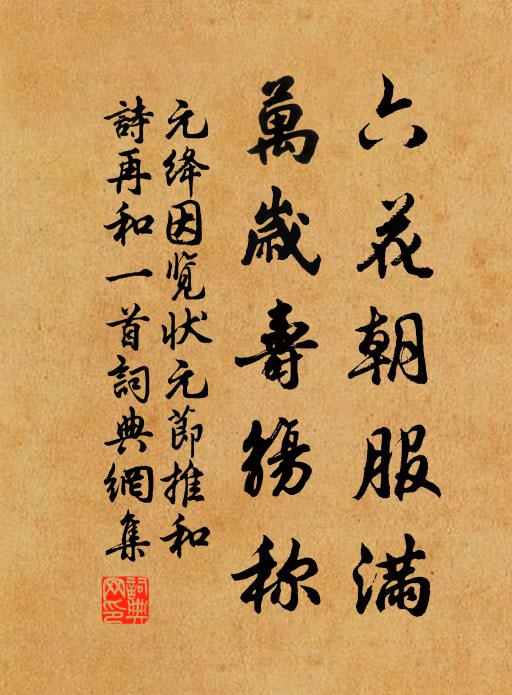 六花朝服满
萬歲壽觴称
元绛因览状元節推和
詩再和一首詞典網集
詞典網印